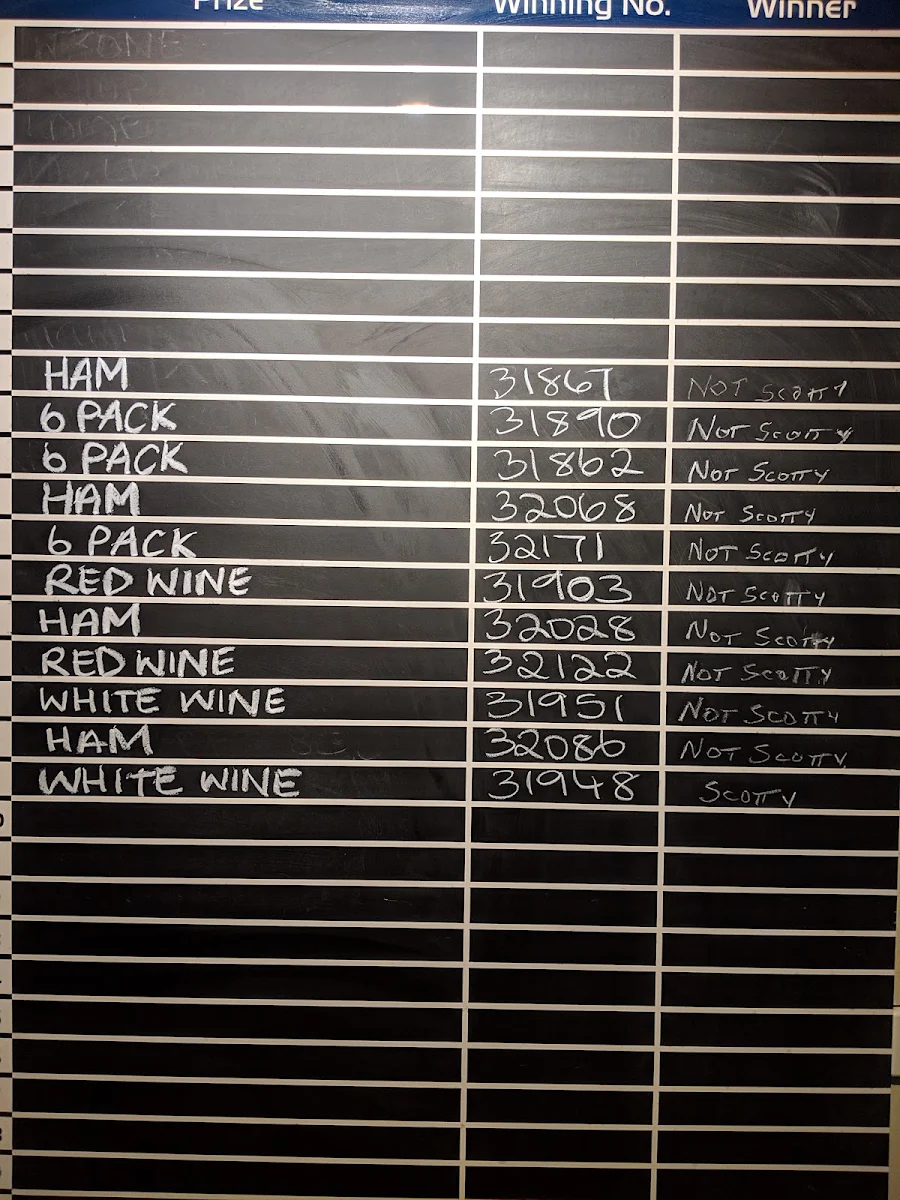 Prize Winning No. Winner
HAM 31867 NOT SCOTTY
6 PACK 31890 NOT SCOTTY
6 PACK 31862 NOT SCOTTY
HAM 32068 NOT SCOTTY
6 PACK 32171 NOT SCOTTY
RED WINE 31903 NOT SCOTTY
HAM 32028 NOT SCOTTY
RED WINE 32122 NOT SCOTTY
WHITE WINE 31951 NOT SCOTTY
HAM 32086 NOT SCOTTY
WHITE WINE 31948 SCOTTY